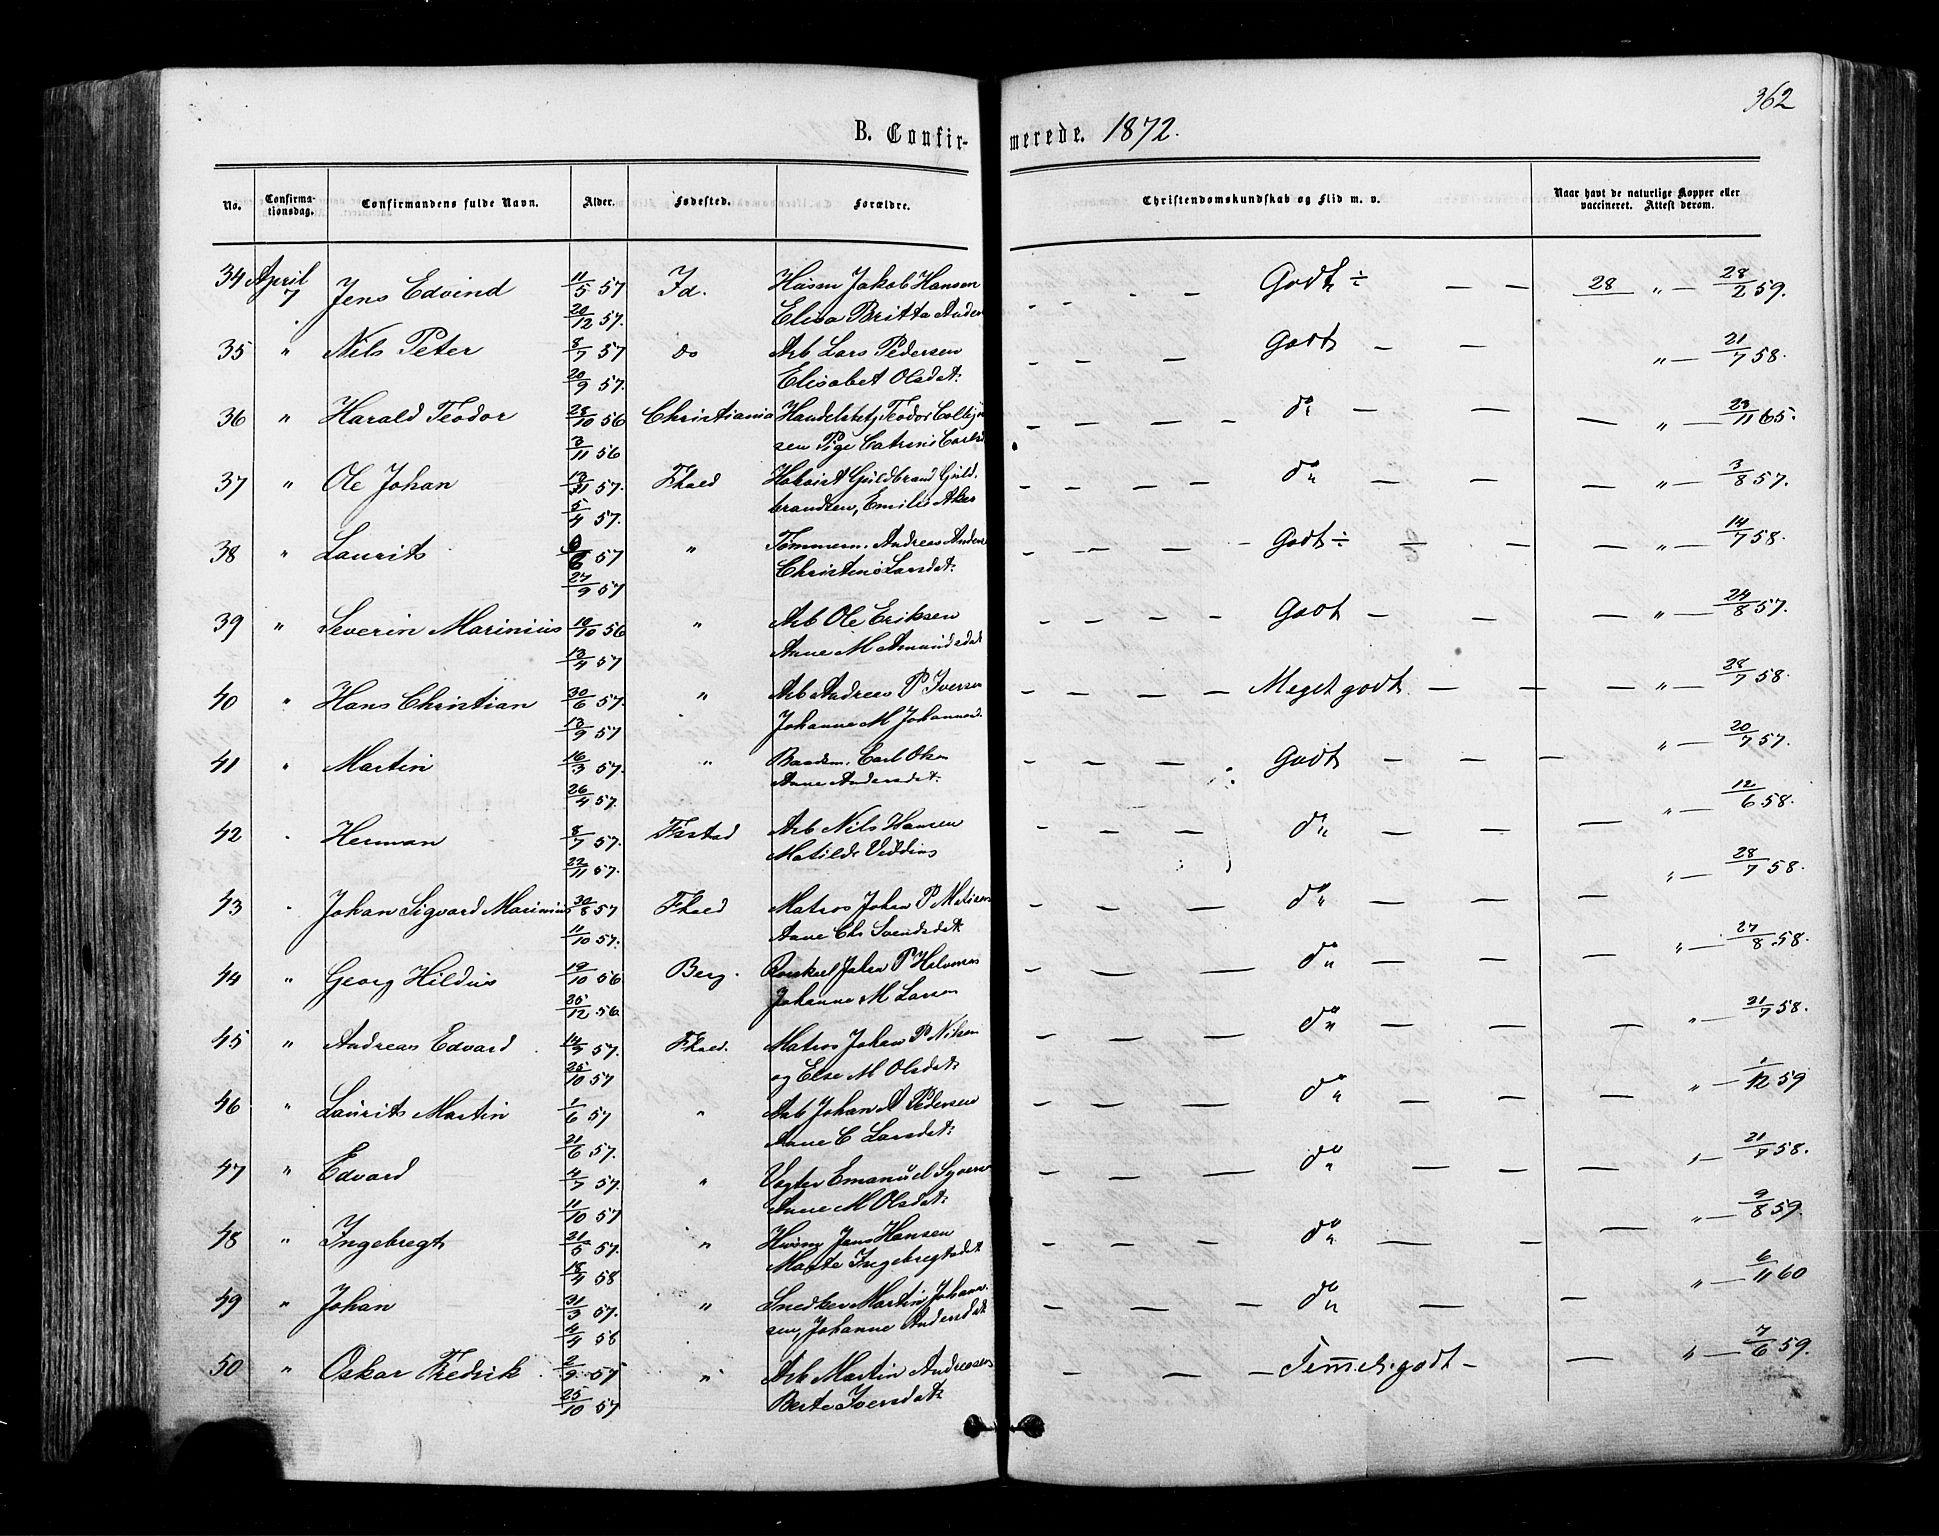 362
B. Confirmerede. 1872.
No. Confirmationsdag. Confirmandens fulde Navn. Alder. Fødested. Forældre. Christendomskundskab og Flid m. v. Naar havt de naturlige Kopper eller vaccineret. Attest derom.
34 April 7 Jens Edvind 11/5 57 Id. Husm Jakob Hansen — — — Godt ÷ — — 28 " — 28/2 59.
20/12 57. Elisa Britta Anders
35 " Nils Peter 8/7 57 do Arb Lars Pedersen — — — Godt — — " — 21/7 58.
20/9 57. Elisabet Olsdat:
36 " Harald Teodor 28/10 56 Christiania Handelsbetj Teodor — — — — do — — — " — 23/11 65.
3/11 56 sen Pige Catrine Carls
37 " Ole Johan 57. Fhald Guldbrand Guld. — — — — do — — — " — 3/8 57.
5/4 57. brandsen, Emilie Aker
38 " Laurits 57 " Tømmerm. Andreas Anders — — — — Godt ÷ ÷ — — " — 14/7 58.
27/9 57 Christine Larsdat:
39 " Severin Marinius 10/10 56 " Arb Ole Eriksen — — — — Godt — — — " — 24/8 57.
13/4 57 Anne M Amundsdat
40 " Hans Christian 30/6 57. " Arb Andreas P Iversen — — — — Meget godt. — — — " — 28/7 58.
13/9 57 Johanne M Johannesd.
41 " Martin 16/3 57. " Baadsm. Carl Olsen — — — Godt — — — " — 20/7 57.
26/4 57. Anne Andersdat:
42 " Herman 8/7 57. Arb Nils Hansen — — — — do — — — " — 12/6 58.
22/11 57. Matilde
43 " Johan Sigvard Marinius 30/8 57 Fhald Matros Johan P — — — — do — — — " — 28/7 58.
11/10 57. Anne Chr Svendsdat:
44 " Georg Hildus 19/10 56 Berg. Johan P Halvorsen — — — do " — 27/8 58.
25/12 56. Johanne M Larsen
45 " Andreas Edvard 14/7 57. Fhald. Matros Johan P Nilsen — — — do — — — " — 21/7 58.
25/10 57 og Else M Olsdat:
46 " Laurits Martin 1/6 57 " Arb Johan A Pedersen — — — do — — — " — 1/12 59
21/6 57. Anne C Larsdat:
47 " Edvard 4/7 57. " Vegter Emanuel — — — do — — — " — 21/7 58.
11/10 57 Anne M Olsdat:
48 " Ingebregt 21/5 57. " Jens Hansen — — — — do — — — " — 9/8 59.
18/4 58 Marte Ingebregtsdat
49 " Johan 31/3 57. " Snedker Martin Johan- — — — do — — — " — 6/11 60
4/4 58 sen, Johanne Andersdat
50 " Oskar Fredrik 2/9 55 " Arb Martin Andresen — — — Temmel. godt — — " — 7/6 59.
25/10 57 Berte Iversdat: